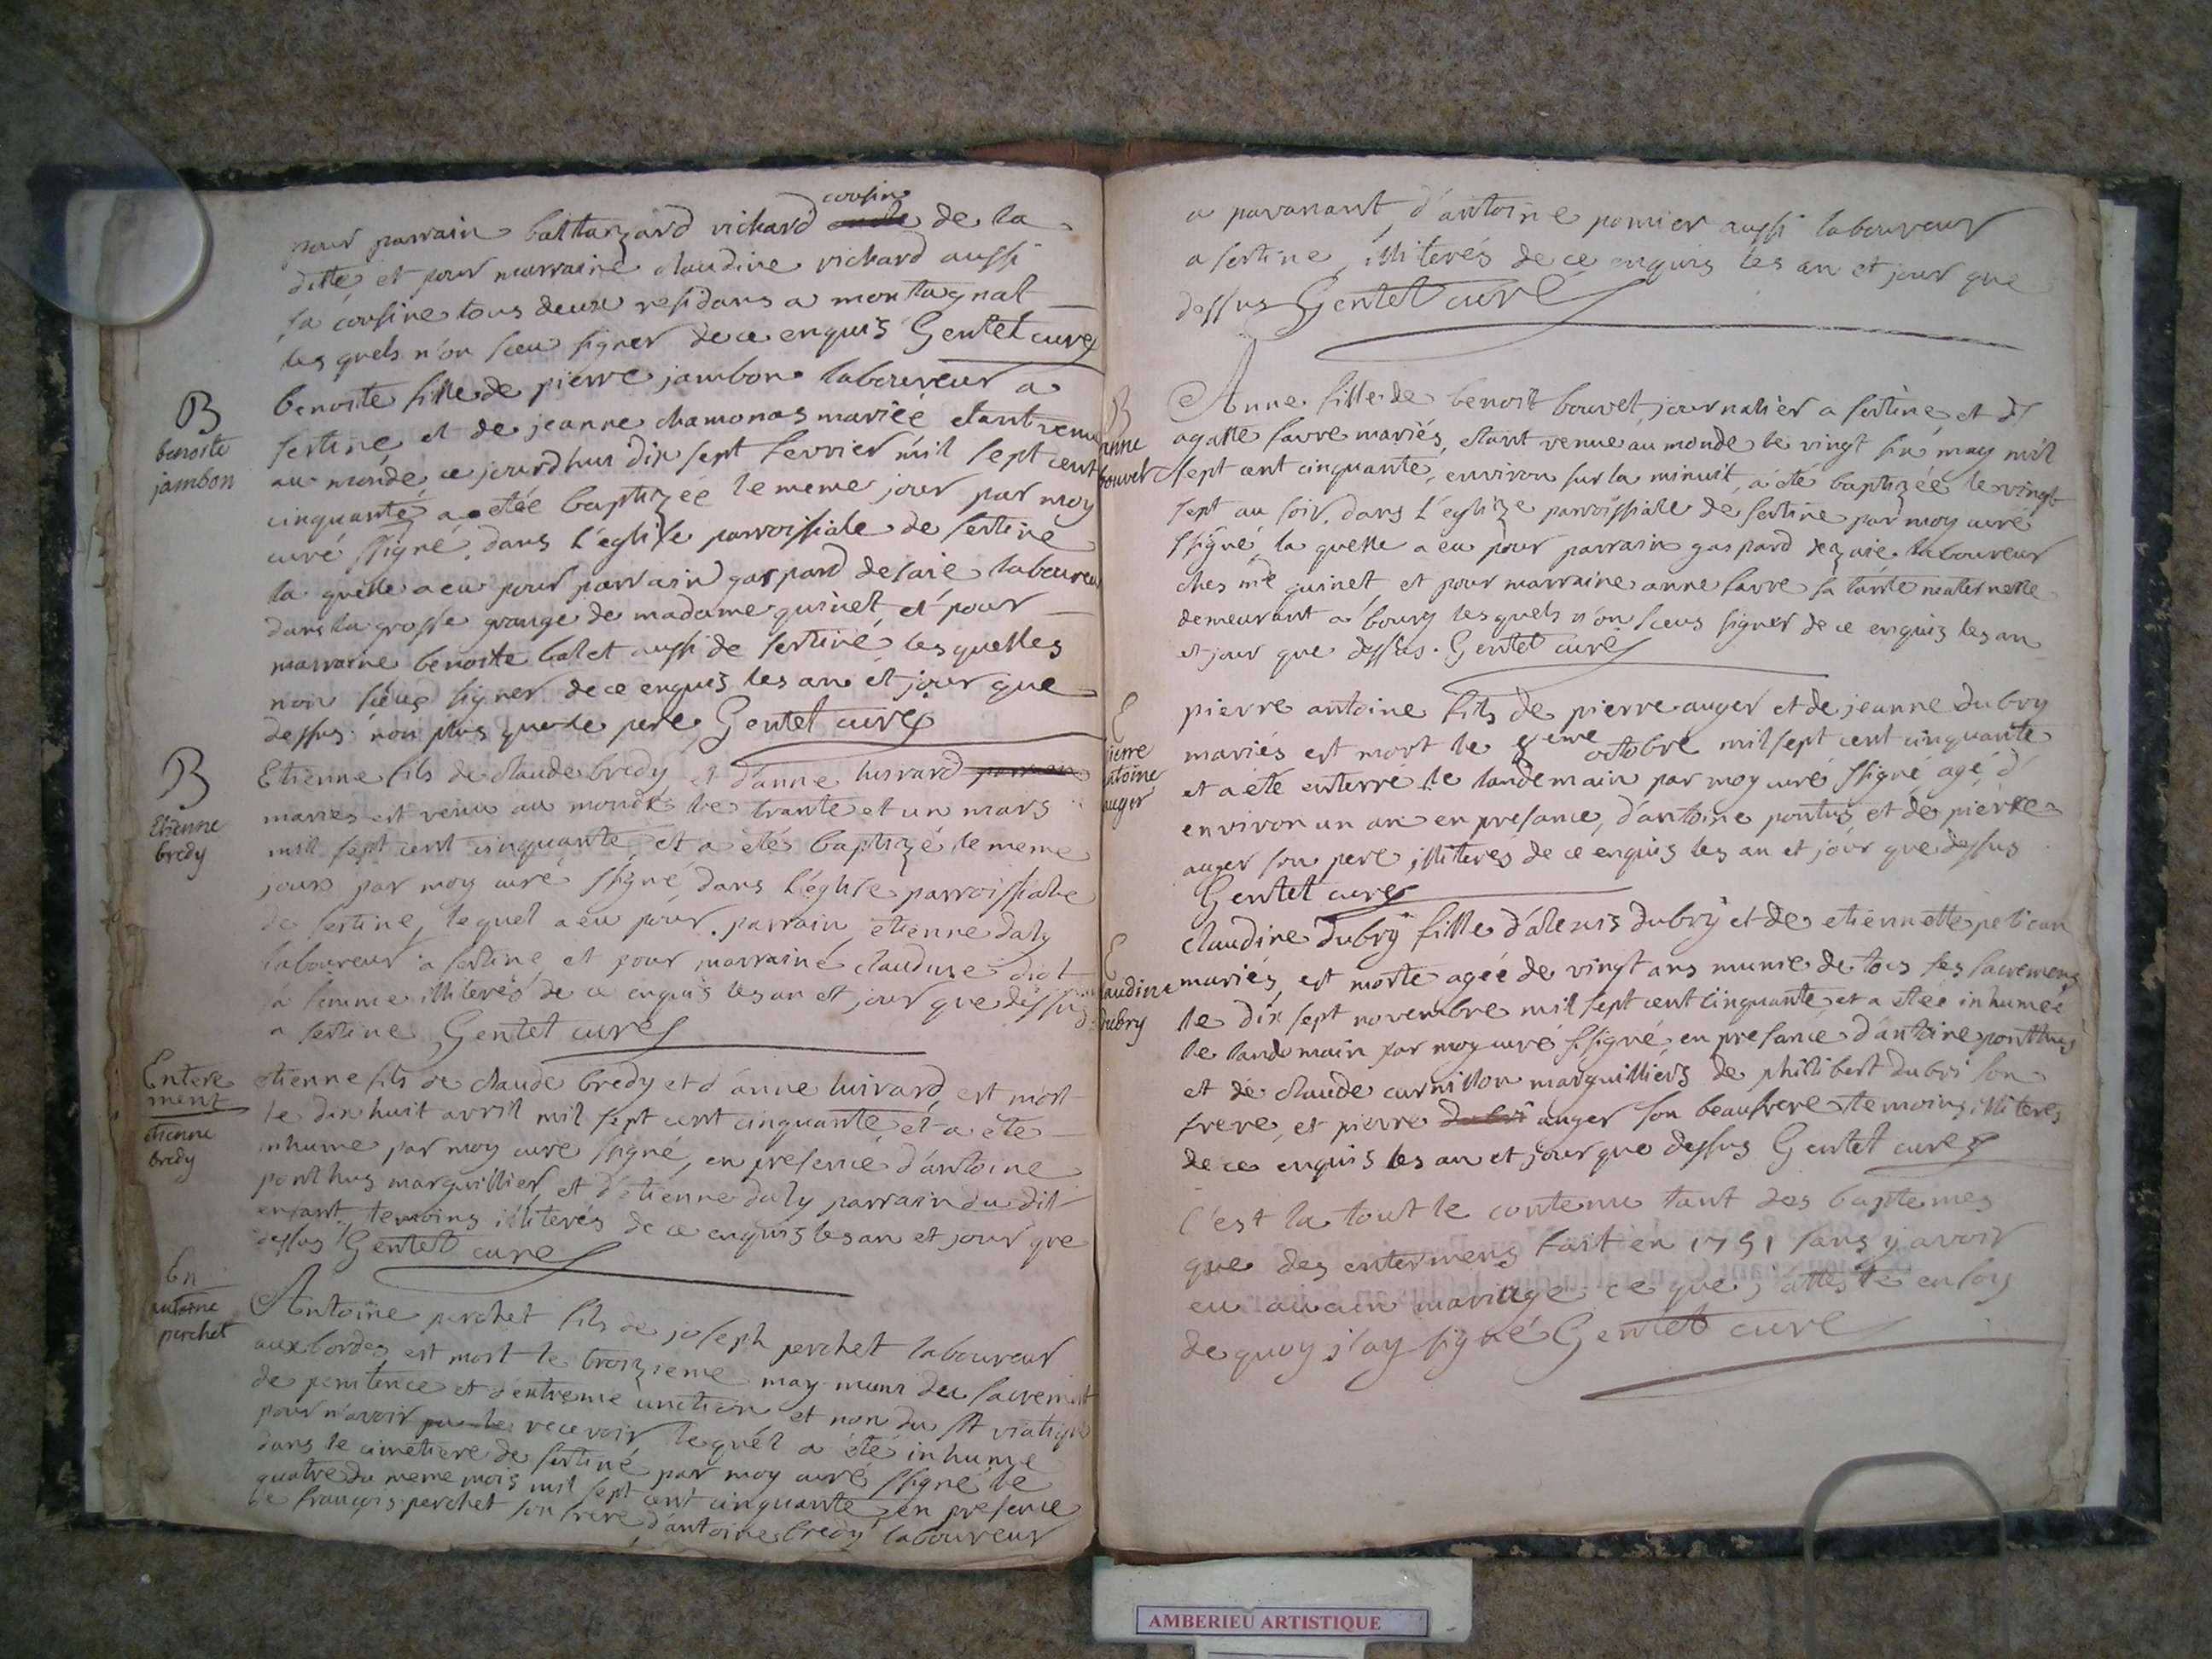 pour parrain baltazard richard cousin de la
ditte, et pour marraine claudine richard aussi
sa cousine tous deux residans a montagnat
les quels n'on sceu signer de ce enquis Gentet curé
B
benoite
jambon
benoite fille de pierre jambon laboureur a
sertine, et de jeanne chamonas mariée etant venue
au monde ce jourdhui dix sept fevrier mil sept cent
cinquante a etée baptizée le meme jour par moy
curé ssigné, dans l'eglise parroissiale de sertine
la quelle a eu pour parrain gaspard desaie laboureur
dans la grosse grange de madame guinet, et pour
marraine benoite balet aussi de sertine, les quelles
non sceus signer de ce enquis les an et jour que
dessus non plus que le pere Gentet curé
B
Etienne
bredy
Etienne fils de claude bredy et d'anne luivard
mariés est venu au monde le trante et un mars
mil sept cent cinquante, et a etés baptizé le meme
jours par moy curé ssigné, dans l'eglise parroissiale
de sertine, lequel a eu pour parrain etienne daly
laboureur a sertine, et pour marraine claudine diot
sa femme illiterés de ce enquis les an et jour que dessus
a sertine Gentet curé
Entere
ment
etienne
bredy
etienne fils de claude bredy et d'anne luivard, est mort
le dix huit avril mil sept cent cinquante et a ete
inhume par moy cure ssigné, en presence d'antoine
ponthus marguillier, et d'etienne daly parrain du dit
enfant, temoins illiterés de ce enquis les an et jour que
dessus Gentet curé
En
antoine
perchet
Antoine perchet fils de joseph perchet laboureur
aux bordes est mort le troizieme may muni du sacrement
de penitence et d'extreme unction et non du st viatique
pour n'avoir pu le recevoir lequel a été inhume
dans le cimetiere de sertine par moy curé ssigné le
quatre du meme mois mil sept cent cinquante, en presence
de françois perchet son frere, d'antoine bredy laboureur
a pavanant, d'antoine pomier aussi laboureur
a sertine, illiterés de ce enquis les an et jour que
dessus Gentet curé
B
anne
bouvet
Anne fille de benoit bouvet, journalier a sertine, et d'
agatte favre mariés, etant venue au monde le vingt six may mil
sept cent cinquante, environ sur la minuit, a été baptizée le vingt
sept au soir, dans l'eglize parroissiale de sertine par moy curé
ssigné, la quelle a eu pour parrain gaspard dezaie laboureur
ches mde guinet, et pour marraine anne favre sa tante maternelle
demeurant a bourg lesquels n'on sceus signer de ce enquis les an
et jour que dessus. Gentet curé
E
pierre
antoine
auger
pierre antoine fils de pierre auger et de jeanne dubry
mariés est mort le 8eme octobre mil sept cent cinquante
et a été enterre le landemain par moy curé ssigné, agé d'
environ un an en presance, d'antoine pontus et de pierre
auger son pere illiterés de ce enquis les an et jour que dessus
Gentet curé
E
claudine
dubry
claudine dubry fille d'alexis dubry et de etiennette pelican
mariés, est morte agée de vingt ans munie de tous ses sacremens
le dix sept novembre mil sept cent cinquante, et a etée inhumée
le landemain par moy curé ssigné, en presance d'antoine ponthus
et de claude curnillon marguilliers de philibert dubri son
frere, et pierre auger son beaufrere temoins illiteres
de ce enquis les an et jour que dessus Gentet curé
C'est la tout le contenu tant des baptemes
que des entermens fait en 1751 sans y avoir
eu aucun mariage ce que j'atteste en foy
de quoy j'ay signé Gentet curé
AMBERIEU ARTISTIQUE